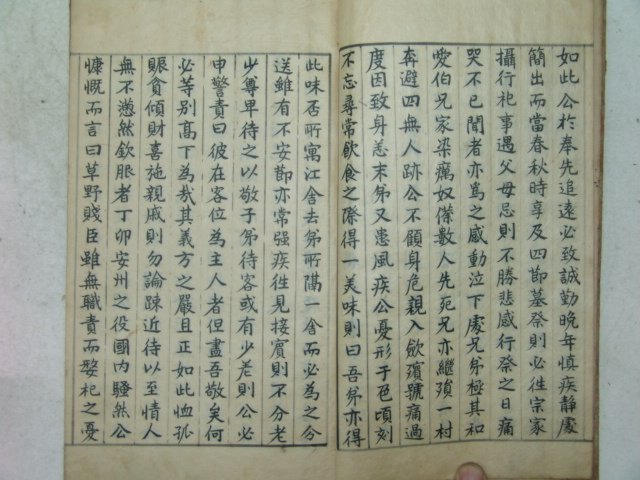 如此公於奉先追遠必致誠勤晚年慎疾靜處
簡出而當春秋時享及四節墓祭則必徃宗家
攝行祀事遇父母忌則不勝悲感行祭之日痛
哭不已聞者亦爲之感動泣下處兄弟極其和
愛伯兄家染癘奴僕數人先死兄亦繼殞一村
奔避四無人跡公不顧身危親入歛殯號痛過
度因致身恙末弟又患風疾公憂形于色頃刻
不忘尋常飮食之際得一美味則曰吾弟亦得
此味否所寓江舍去弟所隔一舍而必為之分
送雖有不安節亦常强疾徃見接賓則不分老
少尊卑待之以敬子弟待客或有少差則公必
申警責曰彼在客位為主人者但盡吾敬矣何
必等別高下為哉其義方之嚴且正如此恤孤
賑貧傾財喜施親戚則勿論踈近待以至情人
無不懣然欽服者丁卯安州之役國內騷然公
慷慨而言曰草野賤臣雖無職責而嫠杞之憂